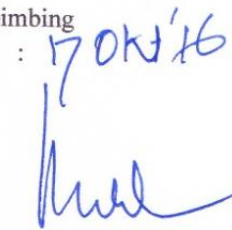 imbing
: 17 Okt '16